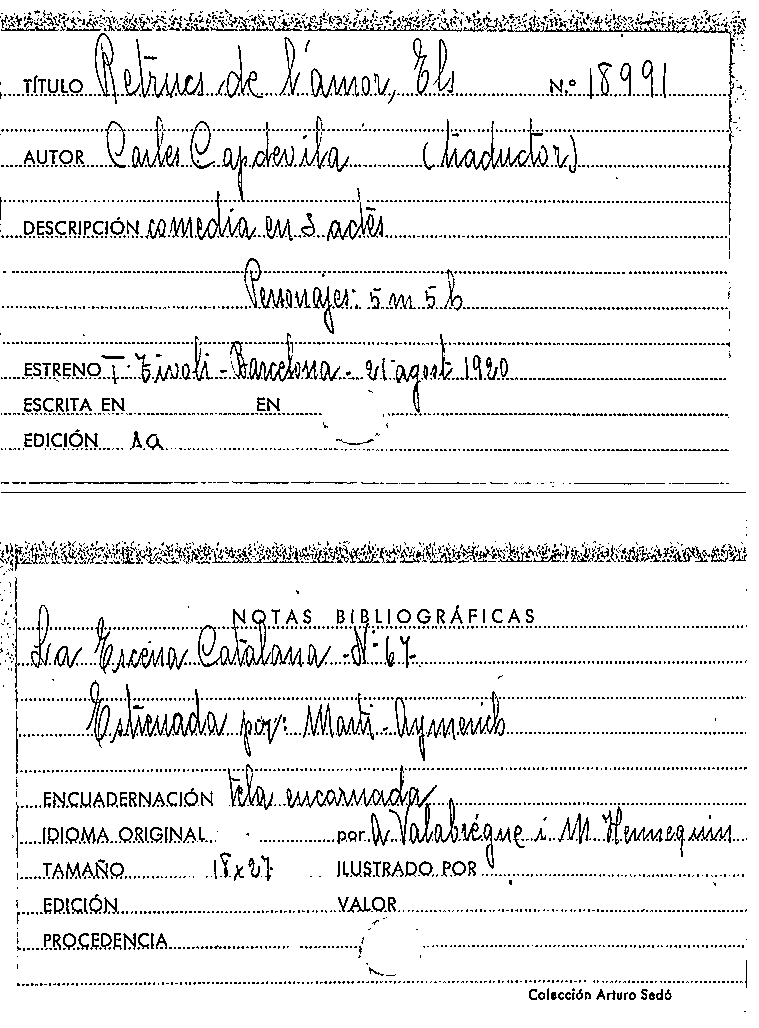 TÍTULO Retrucs de l'amor, Els N.º 18991
AUTOR Carles Capdevila (traductor)
DESCRIPCIÓN comedia en 3 actes
Personajes: 5 m 5 h
ESTRENO T. Tívoli - Barcelona - 21 agost 1920
ESCRITA EN EN
EDICIÓN 1a
NOTAS BIBLIOGRÁFICAS
La Escena Catalana - Nº 67-
Estrenada por: Martí-Aymerich
ENCUADERNACIÓN tela encarnada
IDIOMA ORIGINAL por A. Valabrégue i M. Hennequin
TAMAÑO 18x27 ILUSTRADO POR
EDICIÓN VALOR
PROCEDENCIA
Colección Arturo Sedó